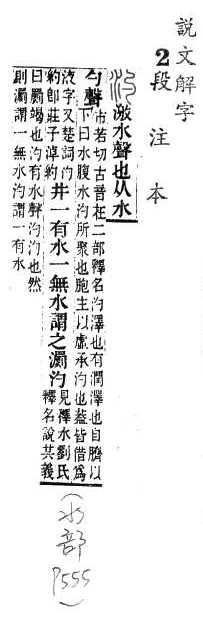 說文解字
2段注本
汋 激水聲也从水
勺聲
市若切古音在二部釋名汋澤也有潤澤也自臍以
下曰水腹水汋所聚也胞主以虛承汋也葢皆借爲
液字又楚詞汋
約卽莊子淖約
井一有水一無水謂之瀱汋
見釋水劉氏
釋名說其義
曰瀱竭也汋有水聲汋汋也然
則瀱謂一無水汋謂一有水
(水部 P555)